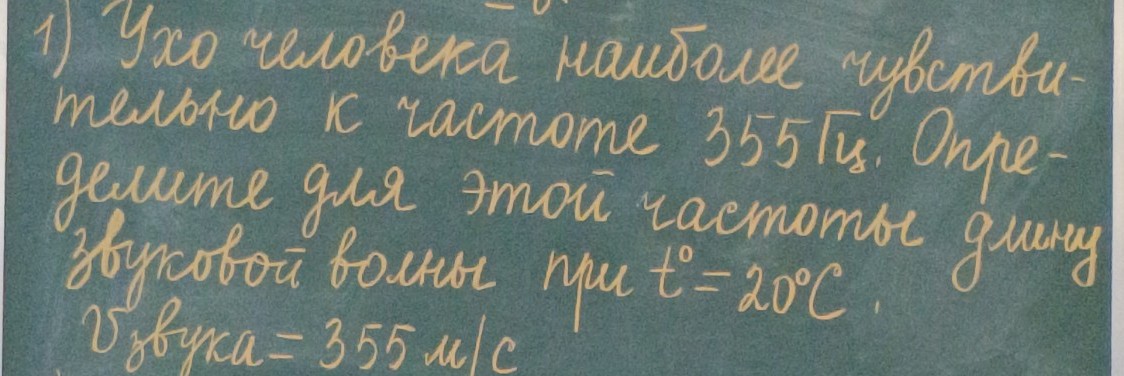 1) Ухо человека наиболее чувстви-
тельно к частоте 355 Гц. Опре-
делите для этой частоты длину
звуковой волны при t° = 20°C.
Vзвука = 355 м/с